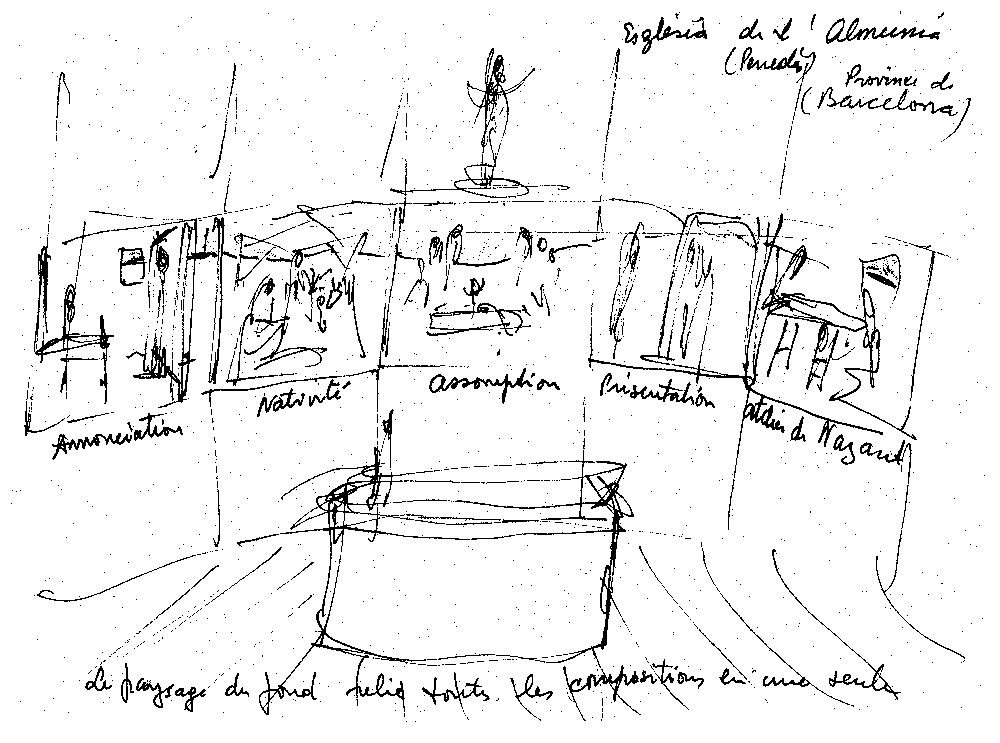 Església de l' Almunia
(Penedès)
Province de
(Barcelona)
Annonciation
Nativité
Assomption
Présentation
atelier de Nazaret
Le paysage du fond relie toutes les compositions en une seule